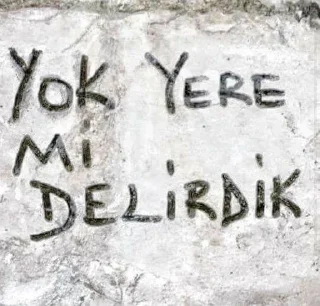 YOK YERE
Mi
DELiRDiK